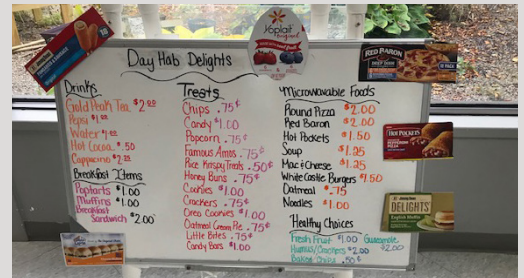 Day Hab Delights
Yoplait
Original
Drinks
Gold Peak Tea $2.00
Pepsi $1.00
Water $1.00
Hot Cocoa $.50
Cappucino $2.25
Breakfast Items
Poptarts $1.00
Muffins $1.00
Breakfast
Sandwich $2.00
Treats
Chips .75¢
Candy $1.00
Popcorn .75¢
Famous Amos .75¢
Rice Krispy Treats .50¢
Honey Buns .75¢
Cookies $1.00
Crackers .75¢
Oreo Cookies $1.00
Oatmeal Creme Pie .75¢
Little Bites .75¢
Candy Bars $1.00
Microwavable Foods
Round Pizza $2.00
Red Baron $2.00
Hot Pockets $1.50
Soup $1.25
Mac & Cheese $1.25
White Castle Burgers $1.50
Oatmeal $.75
Noodles $1.00
Healthy Choices
Fresh Fruit $1.00 Guacamole
Humus/Crackers $2.00 $2.00
Baked Chips .50¢
RED BARON
HOT POCKETS
DELIGHTS